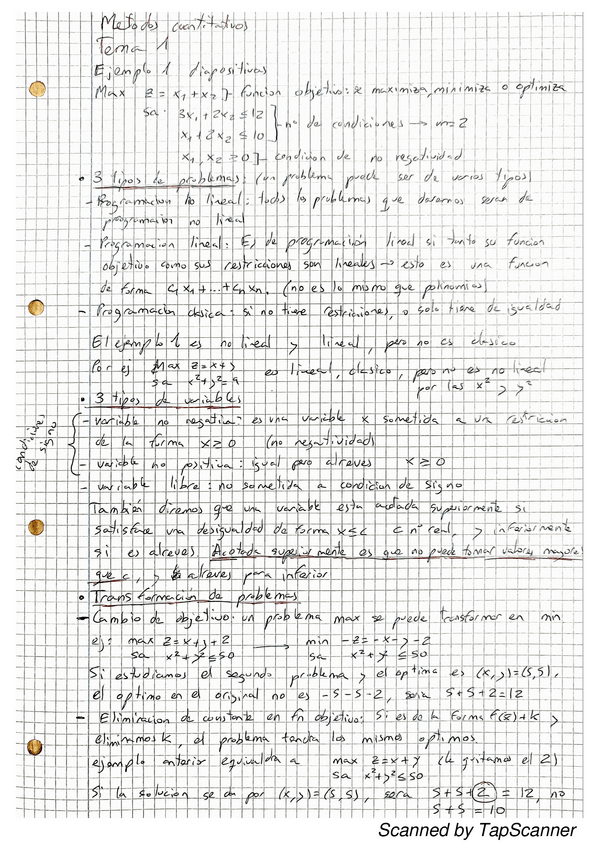 Metodos cuantitativos
Tema 1
Ejemplo 1 diapositivas
Max z = x₁ + x₂ ]- funcion objetivo: se maximiza, minimiza o optimiza
sa: 3x₁ + 2x₂ ≤ 12
x₁ + 2x₂ ≤ 10 ]- nº de condiciones → m=2
x₁, x₂ ≥ 0 ]- condicion de no negatividad
• 3 tipos de problemas: (un problema puede ser de varios tipos)
- Programacion no lineal: todos los problemas que daremos seran de
programacion no lineal
- Programacion lineal: Es de programación lineal si tanto su funcion
objetivo como sus restricciones son lineales → esto es una funcion
de forma c₁x₁ + ... + cₙxₙ. (no es lo mismo que polinomios)
- Programacion clasica: si no tiene restriciones, o solo tiene de igualdad
El ejemplo 1 es no lineal y lineal, pero no es clasico
Por ej Max z = x + y
sa x² + y² = 9 es lineal, clasico, pero no es no lineal
por las x² y y²
• 3 tipos de variables
condiciones de signo
- variable no negativa: es una variable x sometida a una restriccion
de la forma x ≥ 0 (no negatividad)
- variable no positiva: igual pero alreves x ≥ 0
- variable libre: no sometida a condicion de signo
También diremos que una variable esta acotada superiormente si
satisface una desigualdad de forma x ≤ c c nº real, y inferiormente
si es alreves. Acotada superiormente es que no puede tomar valores mayores
que c, y alreves para inferior
• Transformacion de problemas
- Cambio de objetivo: un problema max se puede transformar en min
ej: max z = x + y + 2 → min -z = -x - y - 2
sa x² + y² ≤ 50 sa x² + y² ≤ 50
Si estudiamos el segundo problema y el optimo es (x,y) = (5,5),
el optimo en el original no es -5-5-2, seria 5+5+2=12
- Eliminacion de constante en fn objetivo: Si es de la forma f(x)+k y
eliminamos k, el problema tendra los mismos optimos.
ejemplo anterior equivaldria a max z = x + y (le quitamos el 2)
sa x² + y² ≤ 50
Si la solucion se da por (x,y) = (5,5), sera 5+5+2 = 12, no
5+5 = 10
Scanned by TapScanner